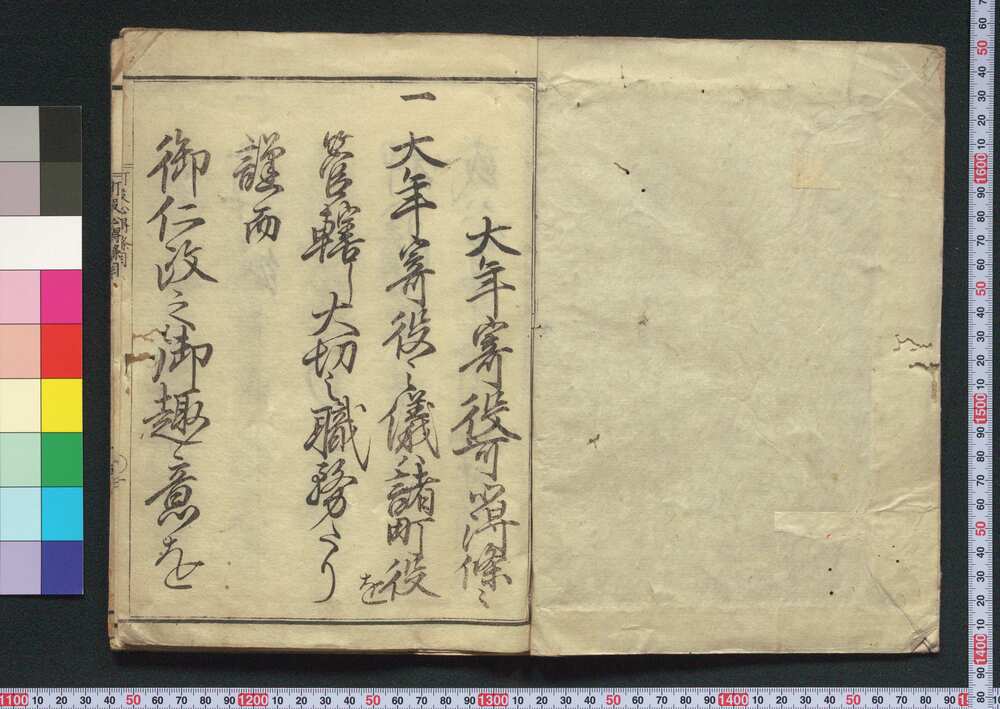 大年寄役可心得條々
一 大年寄役之儀ハ諸町役を
管轄し大切之職務たり
謹而
御仁政之御趣意を
町役心得條目